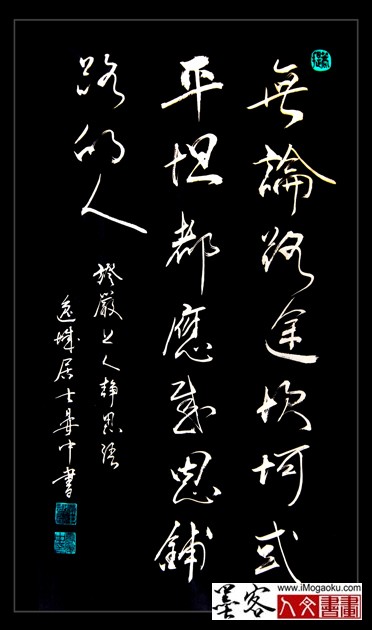 無論路途坎坷或
平坦都應感恩鋪
路的人
證嚴上人靜思語
居士中書
www.iMogaoku.com
墨客 人文書畫